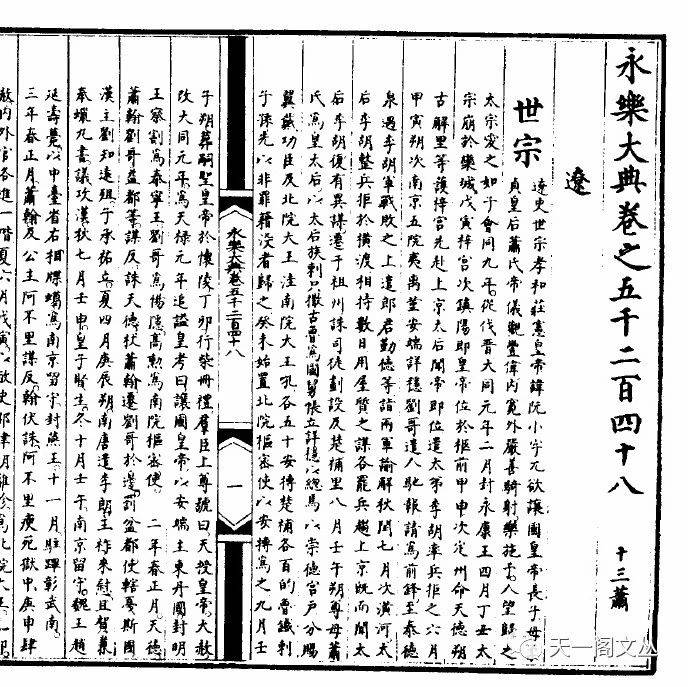 永樂大典卷之五千二百四十八
十三蕭
遼
世宗
遼史世宗孝和莊憲皇帝諱阮小字兀欲讓國皇帝長子母柔
貞皇后蕭氏帝儀觀豐偉內寬外嚴善騎射樂施予人望歸之
太宗愛之如子會同九年從伐晉大同元年二月封永康王四月丁丑太
宗崩於欒城戊寅梓宮次鎮陽即皇帝位於柩前甲申次定州命天德朔
古解里等護梓宮先赴上京太后聞帝即位遣太弟李胡率兵拒之六月
甲寅朔次南京五院夷离堇安端詳穩劉哥遣人馳報請為前鋒至泰德
泉遇李胡軍戰敗之上遣郎君勤德等詣兩軍諭解秋閏七月次潢河太
后李胡整兵拒於橫渡相持數日用屋質之謀各罷兵趨上京既而聞太
后李胡復有異謀遷于祖州誅司徒劃設及楚補里八月壬午朔尊母蕭
氏為皇太后以太后族剌只撒古魯為國舅帳立詳穩以總焉以崇德宮戶分賜
翼戴功臣及北院大王洼南院大王吼各五十安摶楚補各百的魯鐵剌
子孫先以非罪籍沒者歸之癸未始置北院樞密使以安摶為之九月壬
永樂大典卷五千二百四十八
一
子朔葬嗣聖皇帝於懷陵丁卯行柴冊禮羣臣上尊號曰天授皇帝大赦
改大同元年為天祿元年追謚皇考曰讓國皇帝以安端主東丹國封明
王察割為泰寧王劉哥為惕隱高勳為南院樞密使 二年春正月天德
蕭翰劉哥盆都等謀反誅天德杖蕭翰遷劉哥於邊罰盆都使轄戞斯國
漢主劉知遠殂子承祐立夏四月庚辰朔南唐遣李朗王祚來慰且賀兼
奉蠟丸書議攻漢秋七月壬申皇子賢生冬十月壬午南京留守魏王趙
延壽薨以中臺省右相牒蠟為南京留守封燕王十一月駐蹕彰武南
三年春正月蕭翰及公主阿不里謀反翰伏誅阿不里瘐死獄中庚申肆
赦內外官各進一階夏六月戊寅以敵史耶律
天一閣文丛